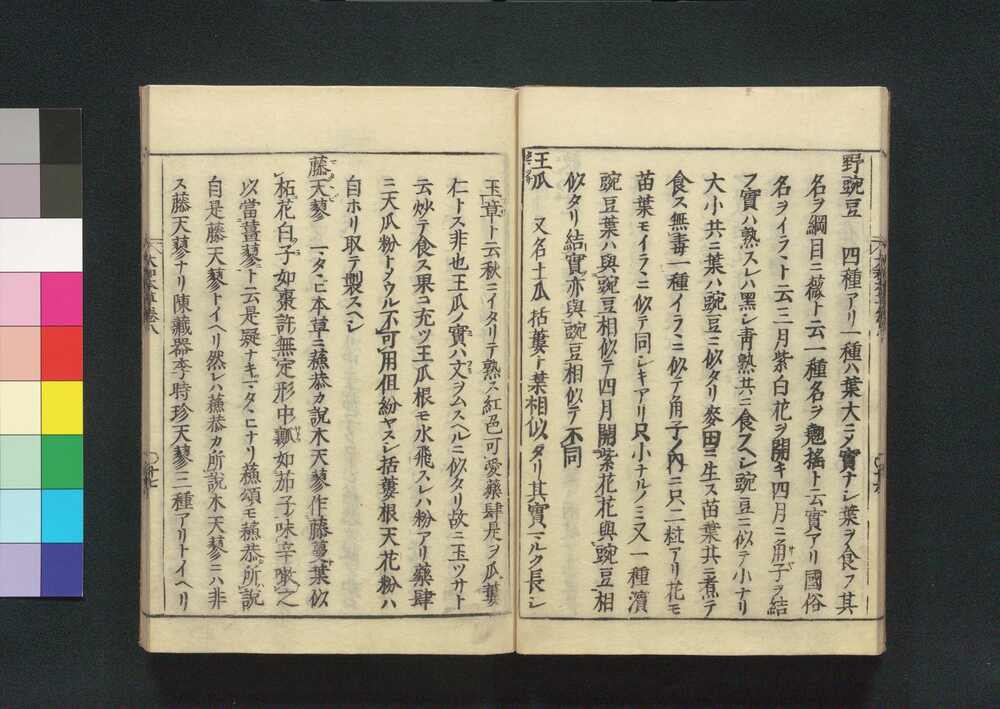 野豌豆 四種アリ一種ハ葉大ニメ實ナシ葉ヲ食フ其
名ヲ綱目ニ薇ト云一種名ヲ翹搖ト云實アリ國俗
名ヲイラヽト云三月紫白花ヲ開キ四月ニ角子ヲ結
フ實ハ熟スレハ黑シ靑熟共ニ食スヘシ豌豆ニ似テ小ナリ
大小共ニ葉ハ豌豆ニ似タリ麥田ニ生ス苗葉共ニ煮テ
食ス無毒一種イラヽニ似テ角子ノ內ニ只二粒アリ花モ
苗葉モイラヽニ似テ同シキアリ只小ナルノミ又一種濱
豌豆葉ハ與豌豆相似テ四月開紫花花與豌豆相
似タリ結實亦與豌豆相似テ不同
王瓜 又名土瓜括蔞ト葉相似タリ其實マルク長シ
玉章ト云秋ニイタリテ熟ス紅色可愛藥肆是ヲ瓜蔞
仁トス非也王瓜ノ實ハ文ヲムスヘルニ似タリ故ニ玉ツサト
云炒テ食ス果コ充ツ王瓜根モ水飛スレハ粉アリ藥肆
ニ天瓜粉トメウル不可用但紛ヤスシ括蔞根天花粉ハ
自ホリ取テ製スヘシ
藤天蓼 一タヽビ本草ニ蘓恭カ說木天蓼作藤蔓葉似
柘花白子如棗許無定形中瓤如茄子味辛噉之
以當薑蓼ト云是疑ナキマタヽヒナリ蘓頌モ蘓恭所說
自是藤天蓼トイヘリ然レハ蘓恭カ所說木天蓼ニハ非
ス藤天蓼ナリ陳藏器李時珍天蓼三種アリトイヘリ
大和本草卷八
〇十七